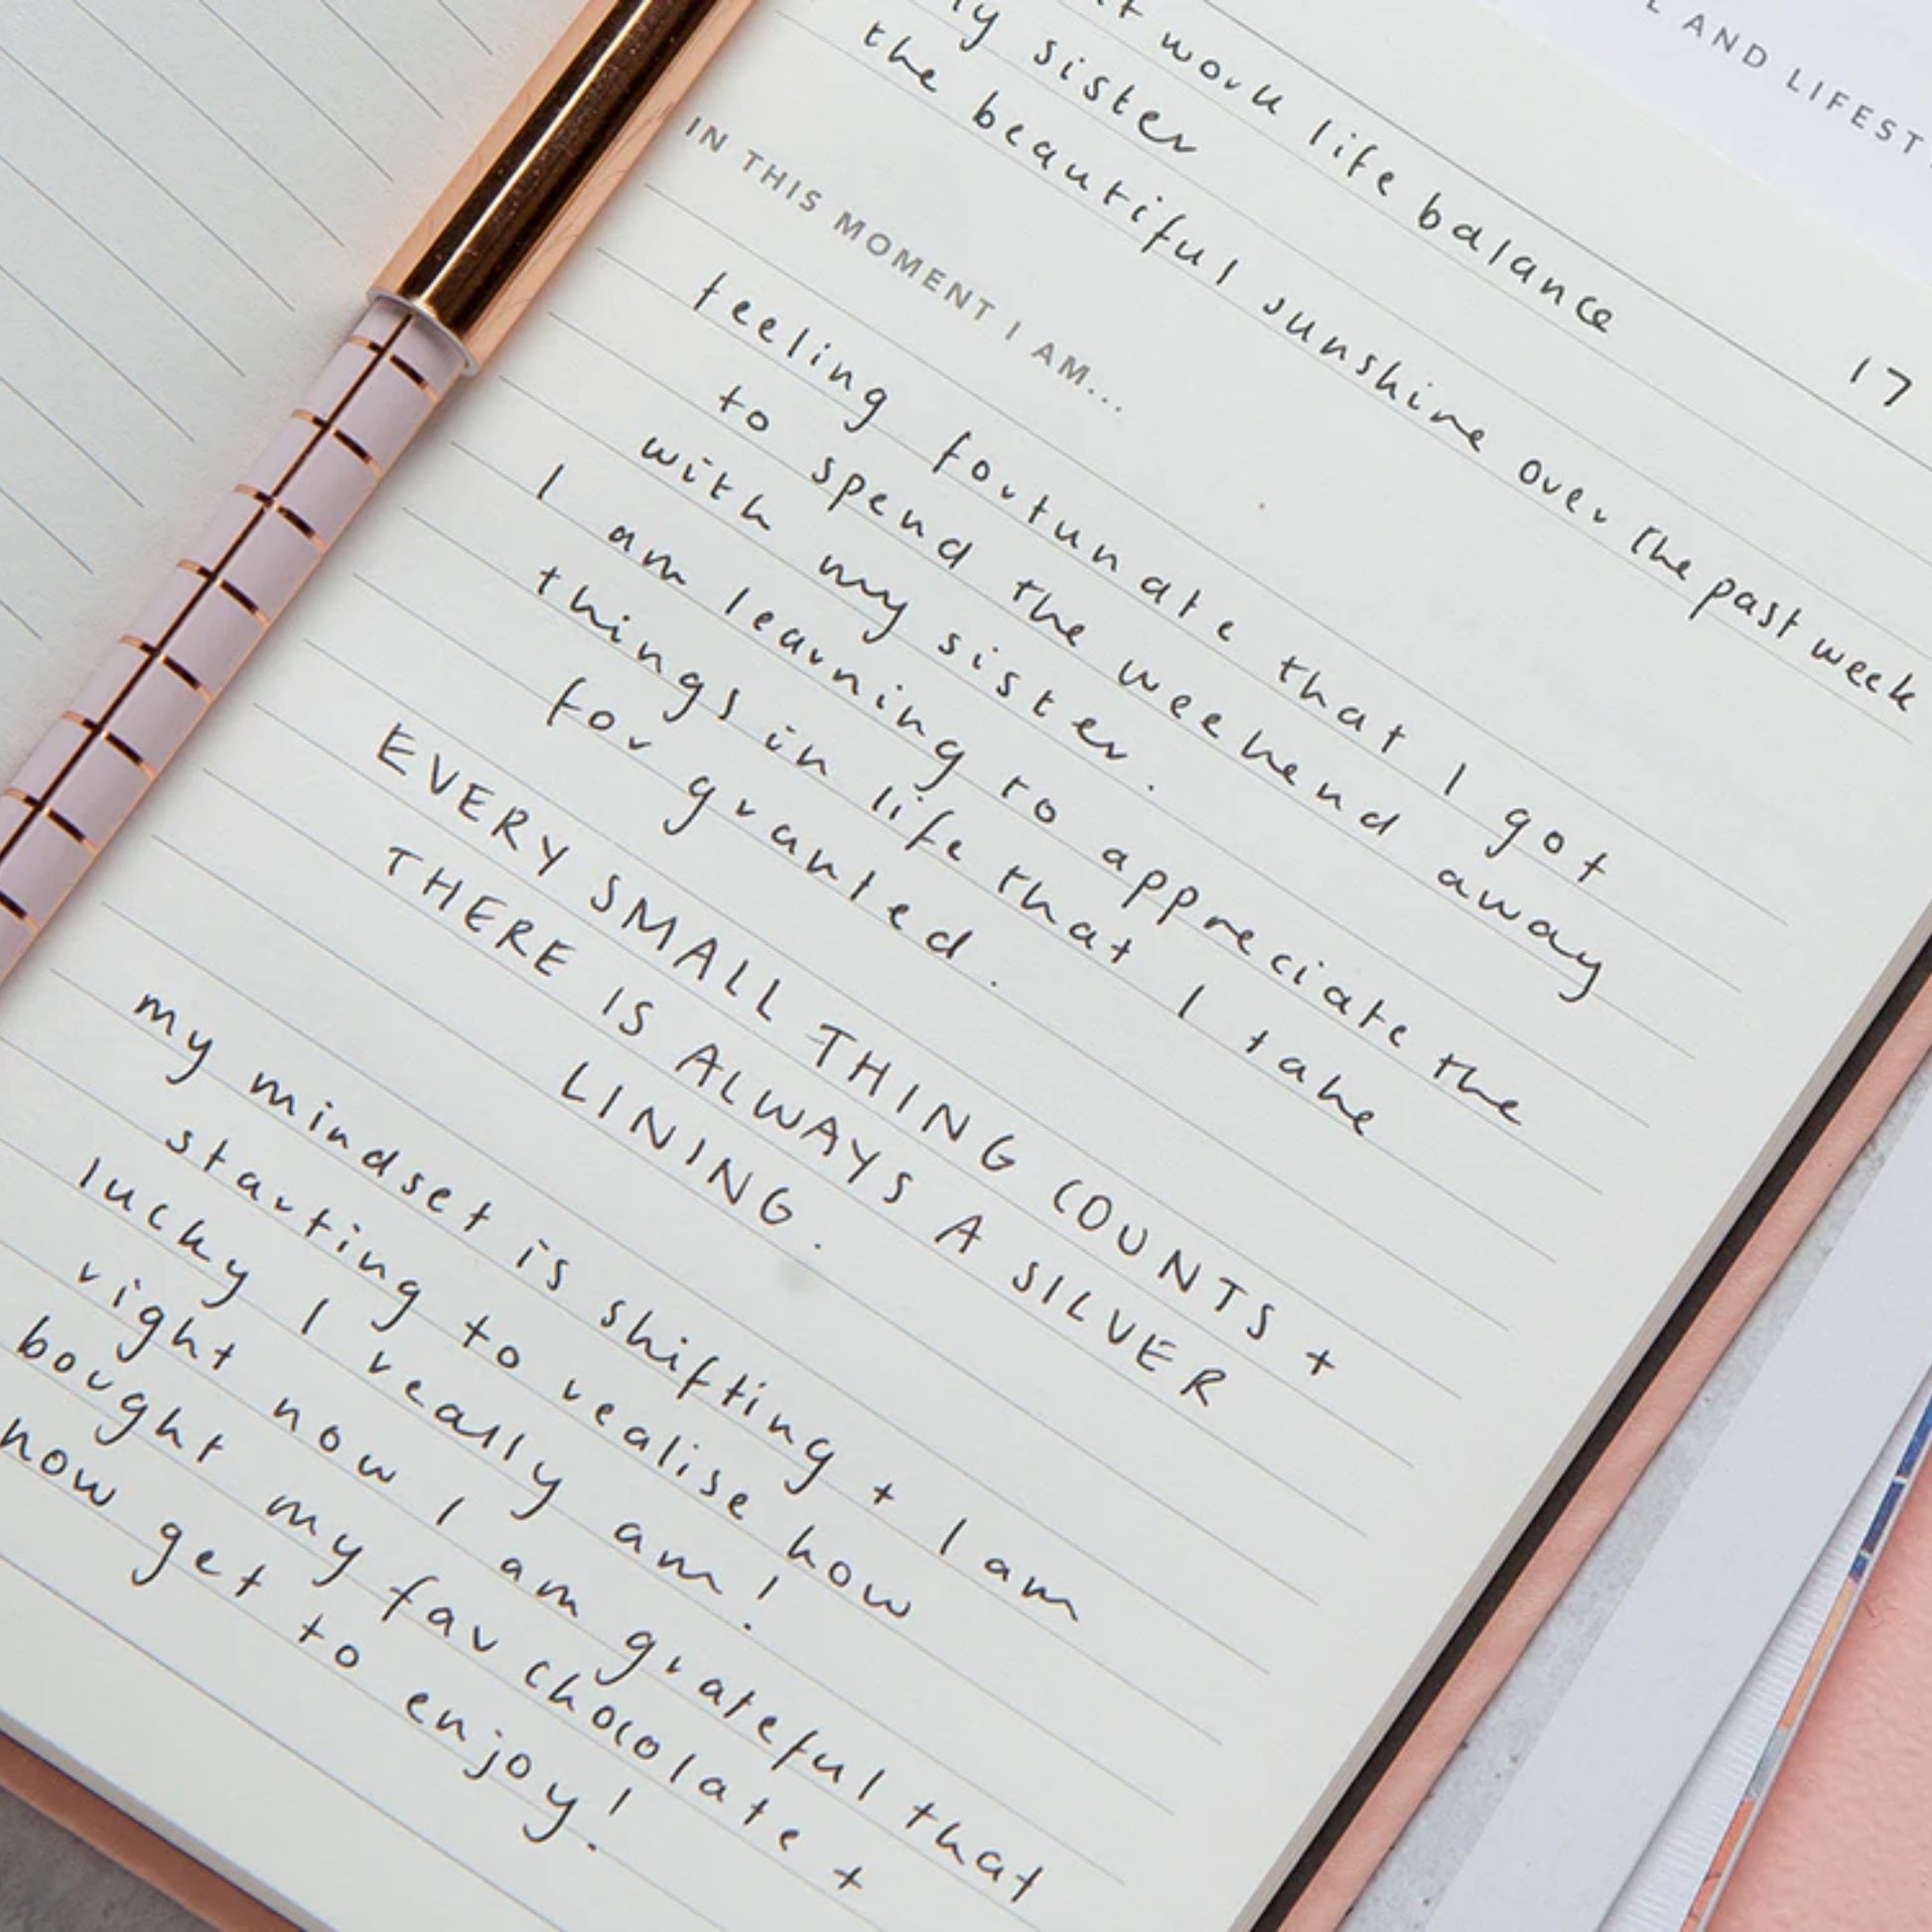 AND LIFEST
work life balance
17
my sister
the beautiful sunshine over the past week
IN THIS MOMENT I AM...
feeling fortunate that I got
to spend the weekend away
with my sister.
I am learning to appreciate the
things in life that I take
for granted.
EVERY SMALL THING COUNTS +
THERE IS ALWAYS A SILVER
LINING.
my mindset is shifting + I am
starting to realise how
lucky I really am!
right now I am grateful that
bought my fav chocolate +
now get to enjoy!